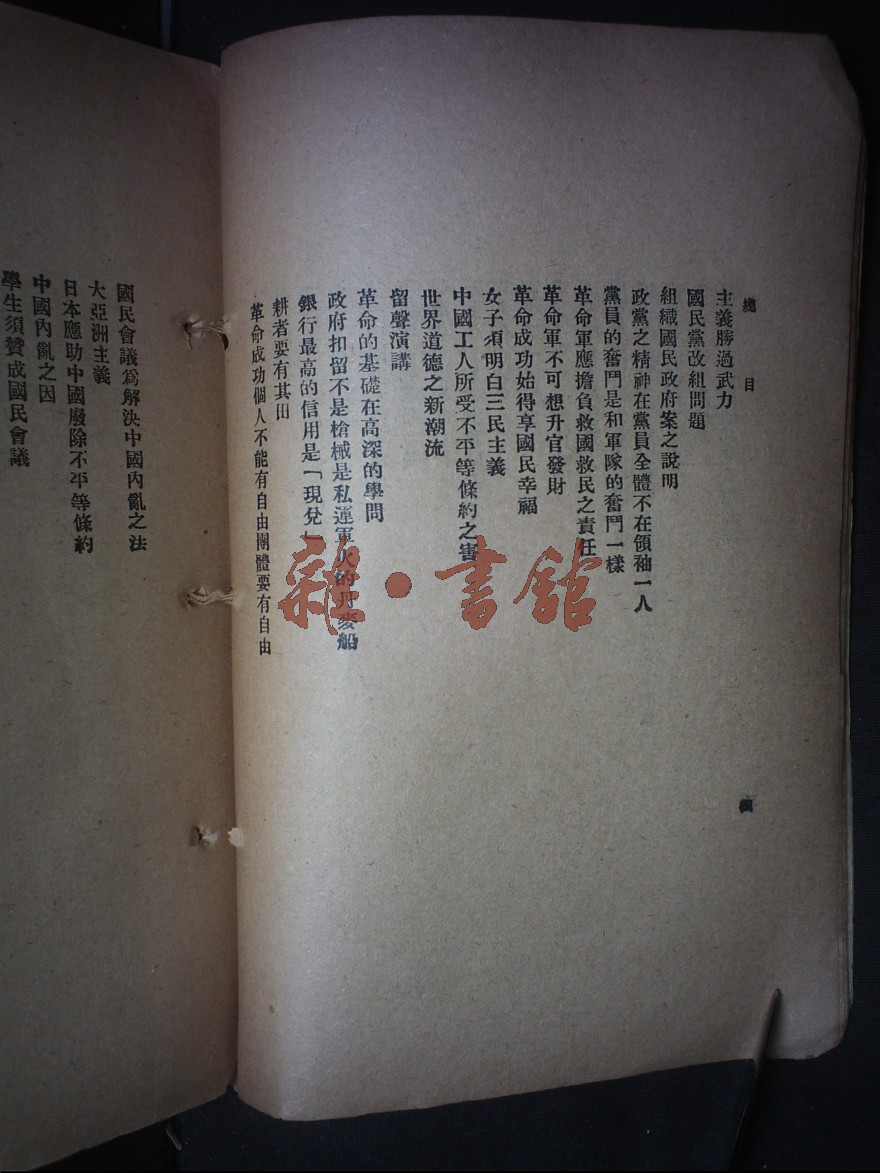 總目
主義勝過武力
國民黨改組問題
組織國民政府案之說明
政黨之精神在黨員全體不在領袖一人
黨員的奮鬥是和軍隊的奮鬥一樣
革命軍應擔負救國救民之責任
革命軍不可想升官發財
革命成功始得享國民幸福
女子須明白三民主義
中國工人所受不平等條約之害
世界道德之新潮流
留聲演講
革命的基礎在高深的學問
政府扣留不是槍械是私運軍火的丹麥船
銀行最高的信用是「現兌」
耕者要有其田
革命成功個人不能有自由團體要有自由
四
國民會議爲解決中國內亂之法
大亞洲主義
日本應助中國廢除不平等條約
中國內亂之因
學生須贊成國民會議
雜·書館